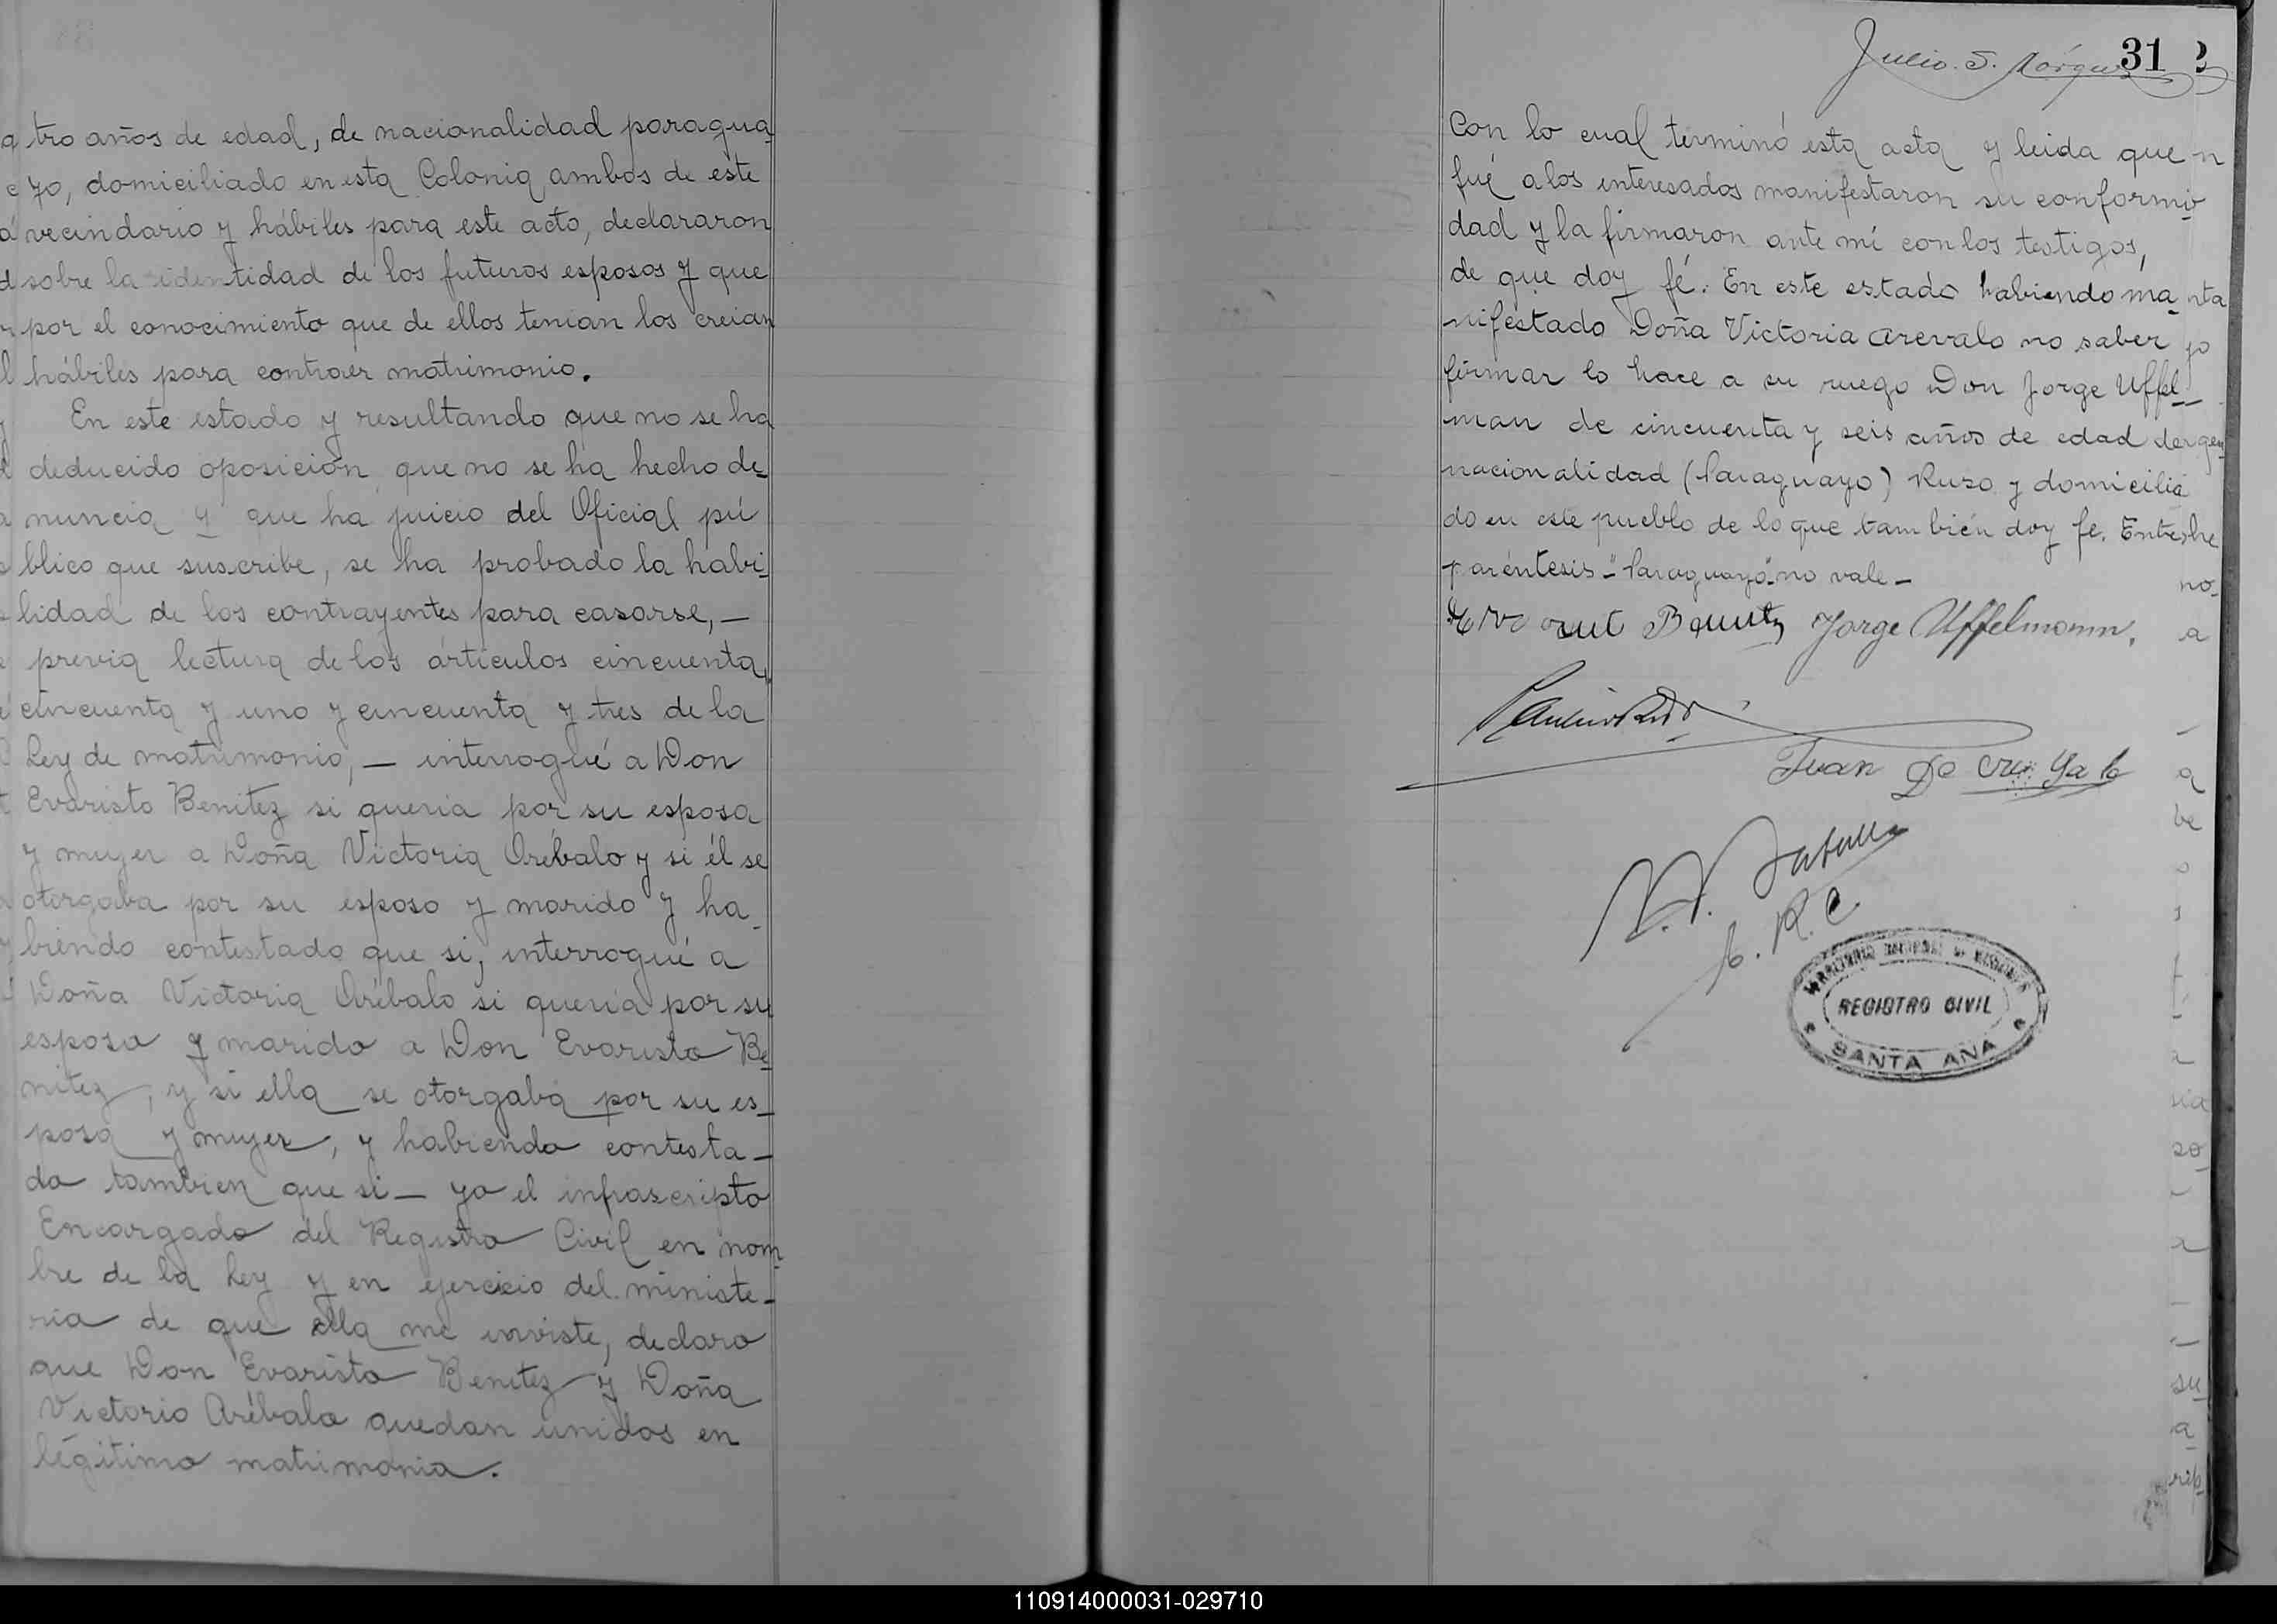 tro años de edad, de nacionalidad paragua
yo, domiciliado en esta Colonia ambos de este
vecindario y hábiles para este acto, declararon
sobre la identidad de los futuros esposos y que
por el conocimiento que de ellos tenian los creian
hábiles para contraer matrimonio.
En este estado y resultando que no se ha
deducido oposición que no se ha hecho de_
nuncia y que ha juicio del Oficial pú
blico que suscribe, se ha probado la habi_
lidad de los contrayentes para casarse, —
previa lectura de los artículos cincuenta,
cincuenta y uno y cincuenta y tres de la
Ley de matrimonio, — interrogué a Don
Evaristo Benitez si queria por su esposa
y mujer a Doña Victoria Arébalo y si él se
otorgaba por su esposo y marido y ha_
biendo contestado que si, interrogué a
Doña Victoria Arébalo si queria por su
esposo y marido a Don Evaristo Be
nitez, y si ella se otorgaba por su es_
posa y mujer, y habiendo contesta_
do tambien que si — yo el infrascripto
Encargado del Registro Civil en nom
bre de la Ley y en ejercicio del ministe_
rio de que ella me inviste, declaro
que Don Evaristo Benitez y Doña
Victorio Arébalo quedan unidos en
légitimo matrimonio.
Julio S.
31
Con lo cual terminó esta acta y leida que
fué a los interesados manifestaron su conformi
dad y la firmaron ante mí con los testigos,
de que doy fé. En este estado habiendo ma_
nifestado Doña Victoria Arevalo no saber
firmar lo hace a su ruego Don Jorge Uffel_
man de cincuenta y seis años de edad de
nacionalidad (Paraguayo) Ruso y domicilia
do en este pueblo de lo que también doy fe. Entre
paréntesis - "Paraguayo" no vale -
Jorge Uffelmann.
Juan De Cruz
R. C.
REGISTRO CIVIL
SANTA ANA
110914000031-029710